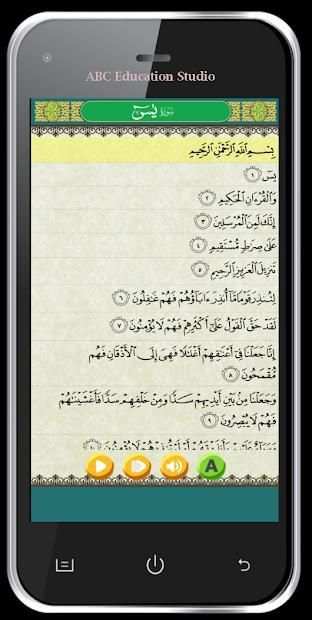 ABC Education Studio
سُورَةُ يسٓ
بِسْمِ اللَّهِ الرَّحْمَٰنِ الرَّحِيمِ
يسٓ ١
وَالْقُرْءَانِ الْحَكِيمِ ٢
إِنَّكَ لَمِنَ الْمُرْسَلِينَ ٣
عَلَىٰ صِرَٰطٍ مُّسْتَقِيمٍ ٤
تَنزِيلَ الْعَزِيزِ الرَّحِيمِ ٥
لِتُنذِرَ قَوْمًا مَّا أُنذِرَ ءَابَاؤُهُمْ فَهُمْ غَٰفِلُونَ ٦
لَقَدْ حَقَّ الْقَوْلُ عَلَىٰ أَكْثَرِهِمْ فَهُمْ لَا يُؤْمِنُونَ ٧
إِنَّا جَعَلْنَا فِي أَعْنَٰقِهِمْ أَغْلَٰلًا فَهِيَ إِلَى الْأَذْقَانِ فَهُم
مُّقْمَحُونَ ٨
وَجَعَلْنَا مِن بَيْنِ أَيْدِيهِمْ سَدًّا وَمِنْ خَلْفِهِمْ سَدًّا فَأَغْشَيْنَٰهُمْ
فَهُمْ لَا يُبْصِرُونَ ٩
وَسَوَاءٌ عَلَيْهِمْ ءَأَنذَرْتَهُمْ أَمْ لَمْ تُنذِرْهُمْ لَا يُؤْمِنُونَ ١٠
A